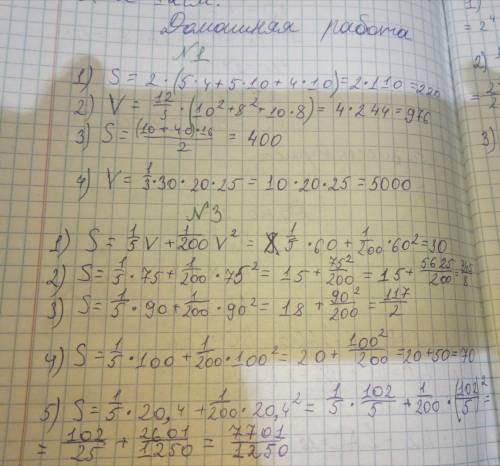 Домашняя работа
№1
1) S = 2·(5·4+5·10+4·10)=2·110=220
2) V = 12/3·(10²+8²+10·8)= 4·244=976
3) S=(10+40)·16/2 = 400
4) V=1/3·30·20·25=10·20·25=5000
№3
1) S=1/5V+1/200V² = 1/5·60+1/200·60²=30
2) S=1/5·75+1/200·75²=15+75²/200=15+5625/200=345/8
3) S=1/5·90+1/200·90²= 18+90²/200=117/2
4) S=1/5·100+1/200·100²=20+100²/200=20+50=70
5) S=1/5·20,4+1/200·20,4²=1/5·102/5+1/200·(102/5)²=
= 102/25+2601/1250=7701/1250